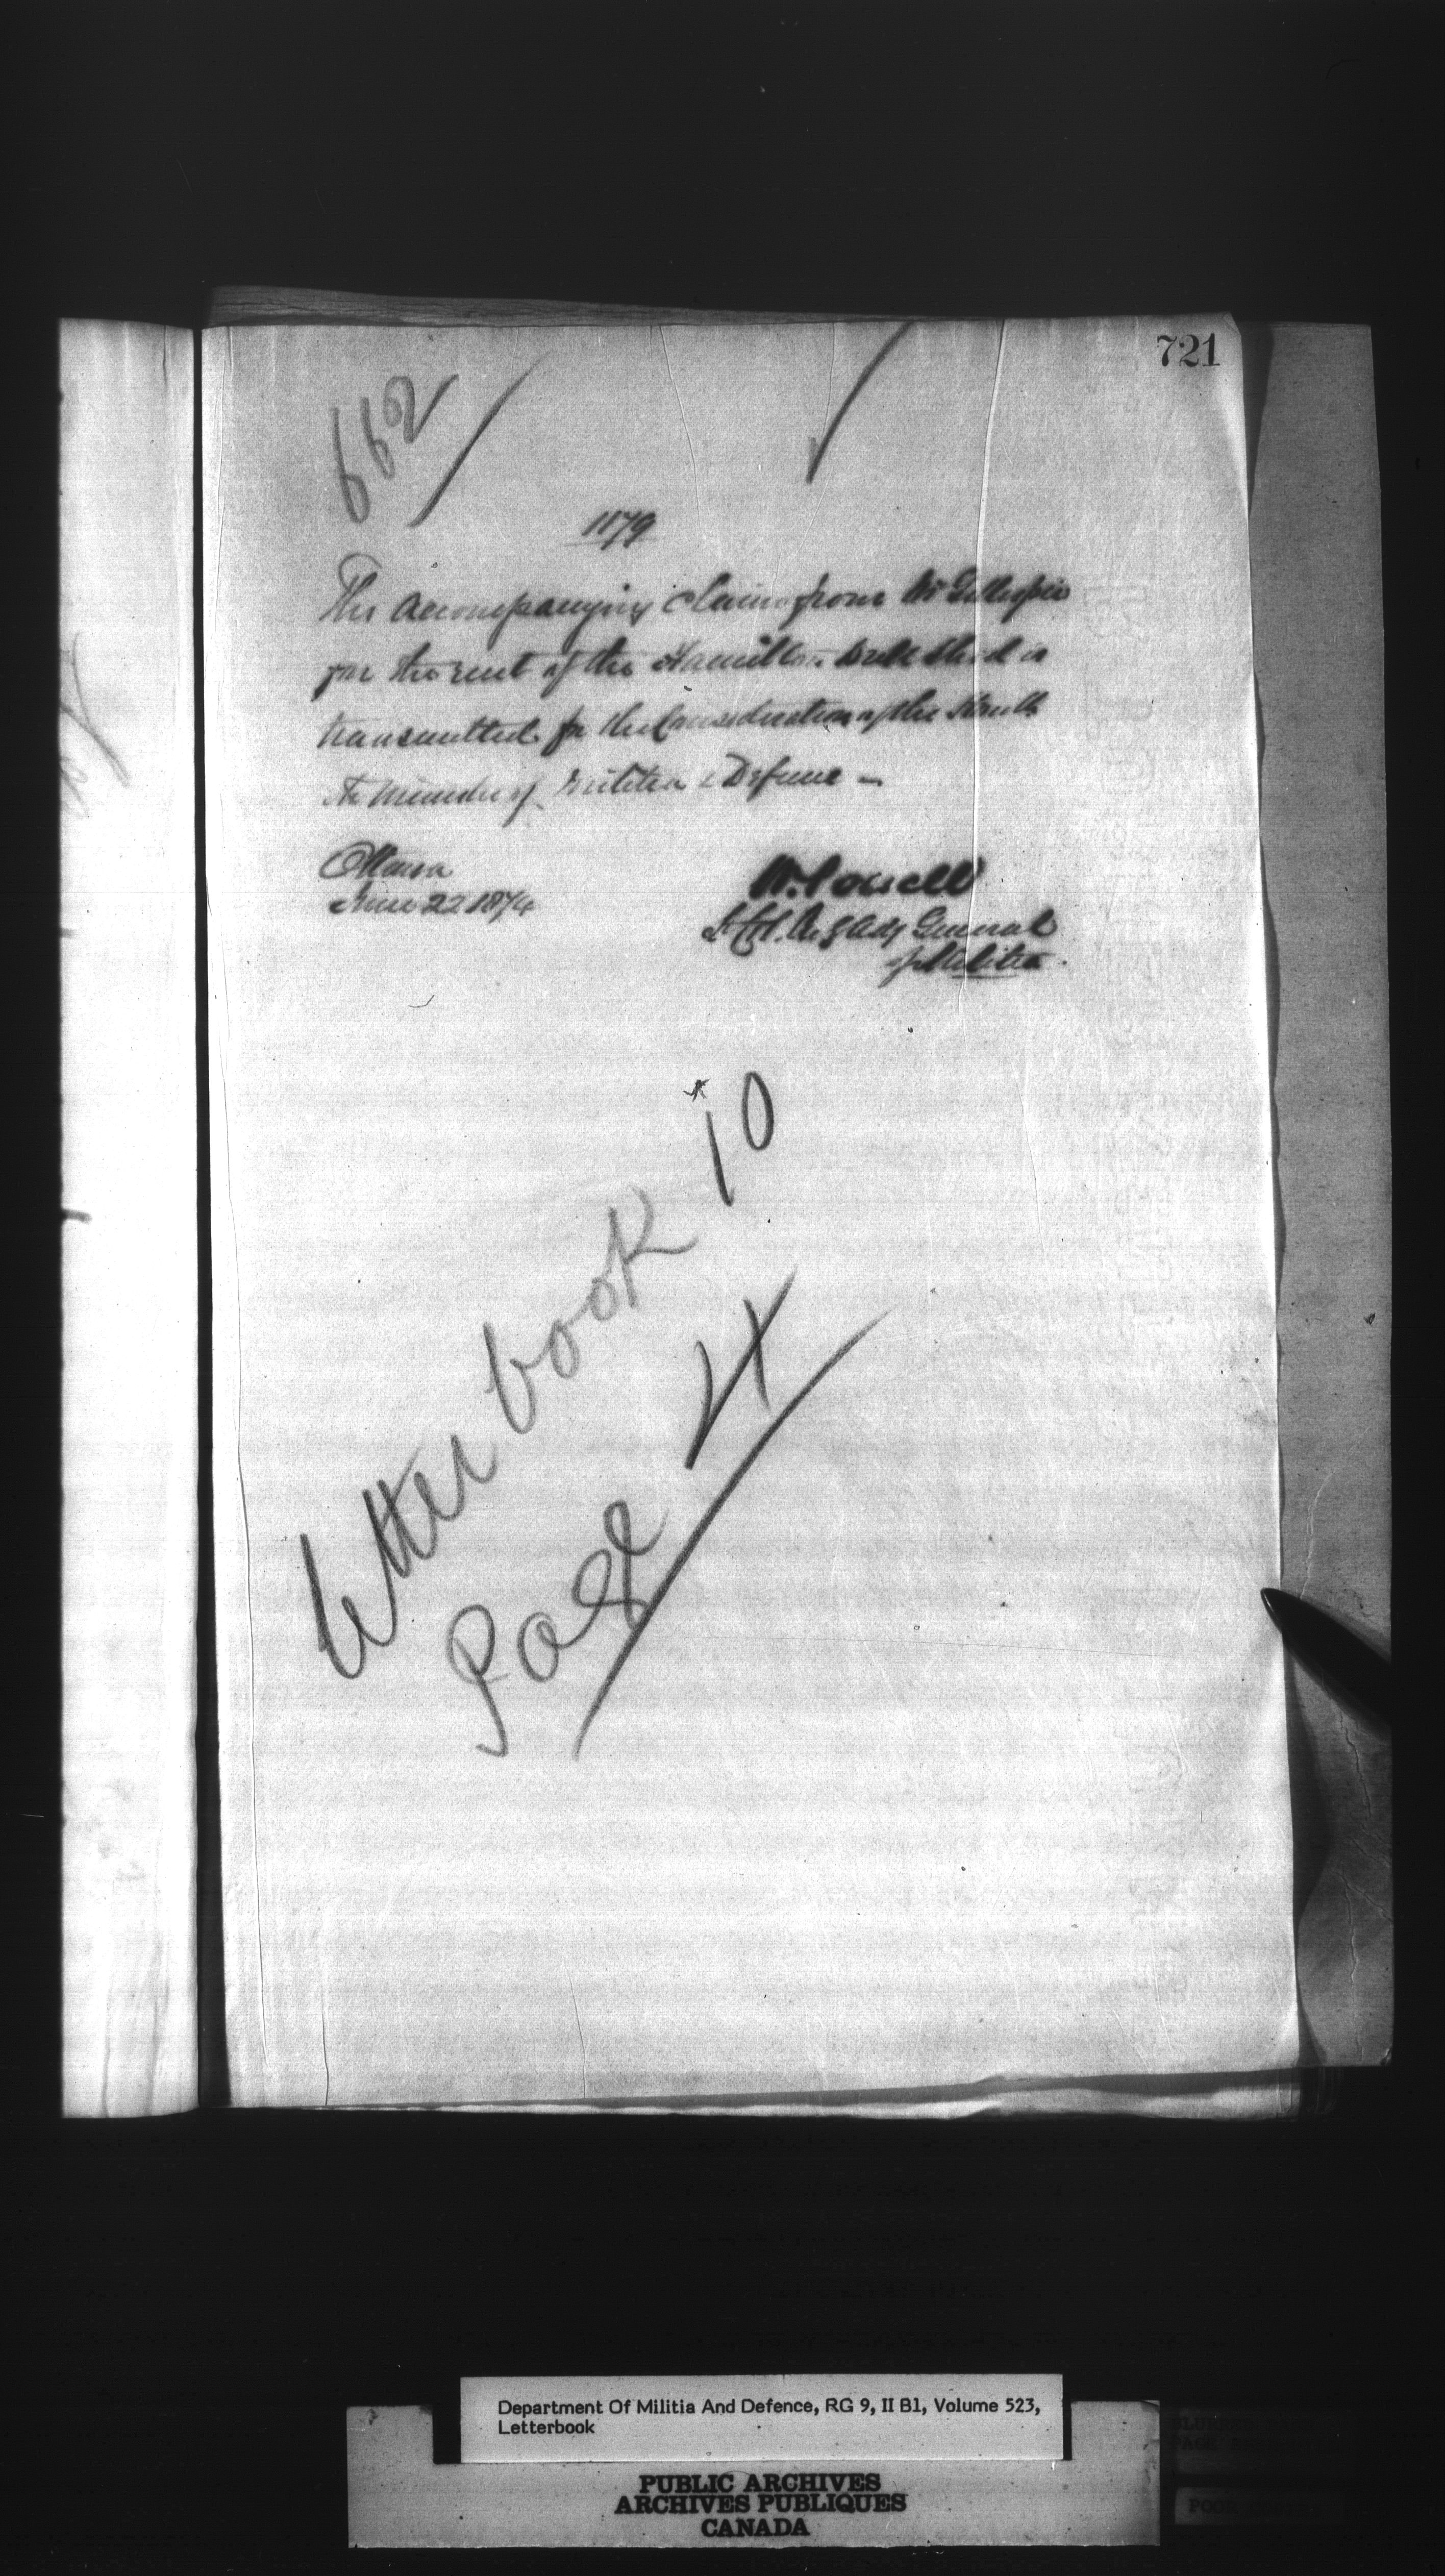 721
662
1179
The accompanying claim from Mr Gillespie
for the rent of the Hamilton Drill Shed is
transmitted for the Consideration of the Honble
the Minister of Militia & Defence —
Ottawa
June 22 1874
W. Powell
Lt Col. Actg Adjt General
of Militia.
Letter book 10
Page 4
Department Of Militia And Defence, RG 9, II B1, Volume 523,
Letterbook
PUBLIC ARCHIVES
ARCHIVES PUBLIQUES
CANADA